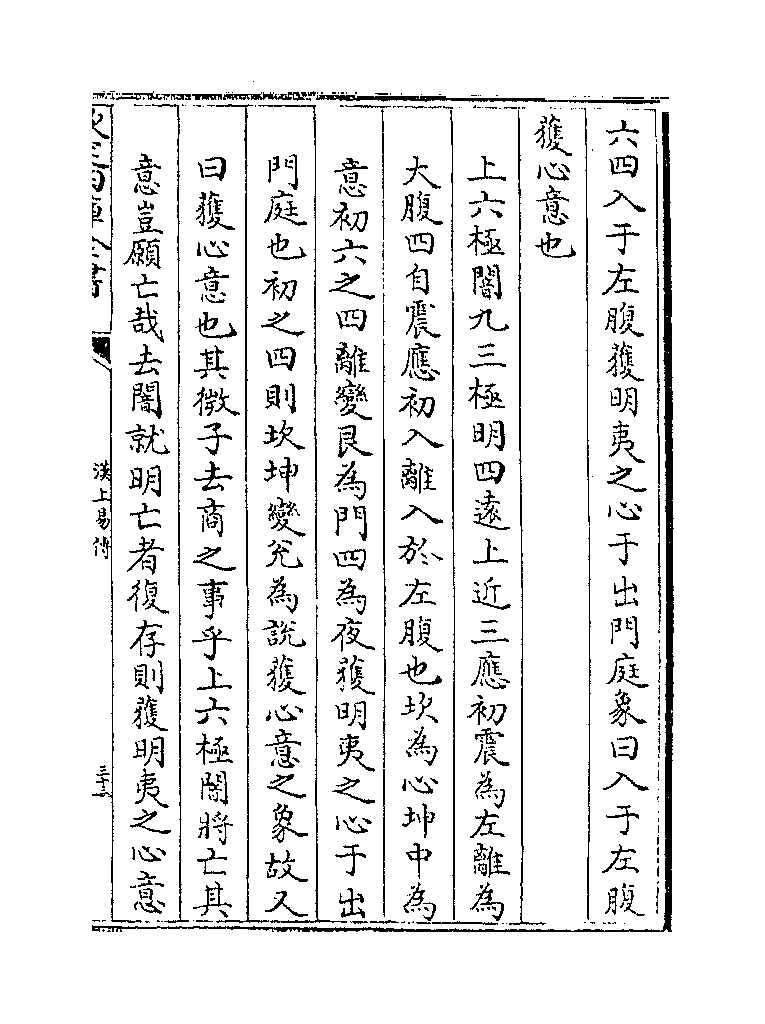 六四入于左腹獲明夷之心于出門庭象曰入于左腹
獲心意也
上六極闇九三極明四遠上近三應初震為左離為
大腹四自震應初入離入於左腹也坎為心坤中為
意初六之四離變艮為門四為夜獲明夷之心于出
門庭也初之四則坎坤變兌為說獲心意之象故又
曰獲心意也其微子去商之事乎上六極闇將亡其
意豈願亡哉去闇就明亡者復存則獲明夷之心意
漢上易傳